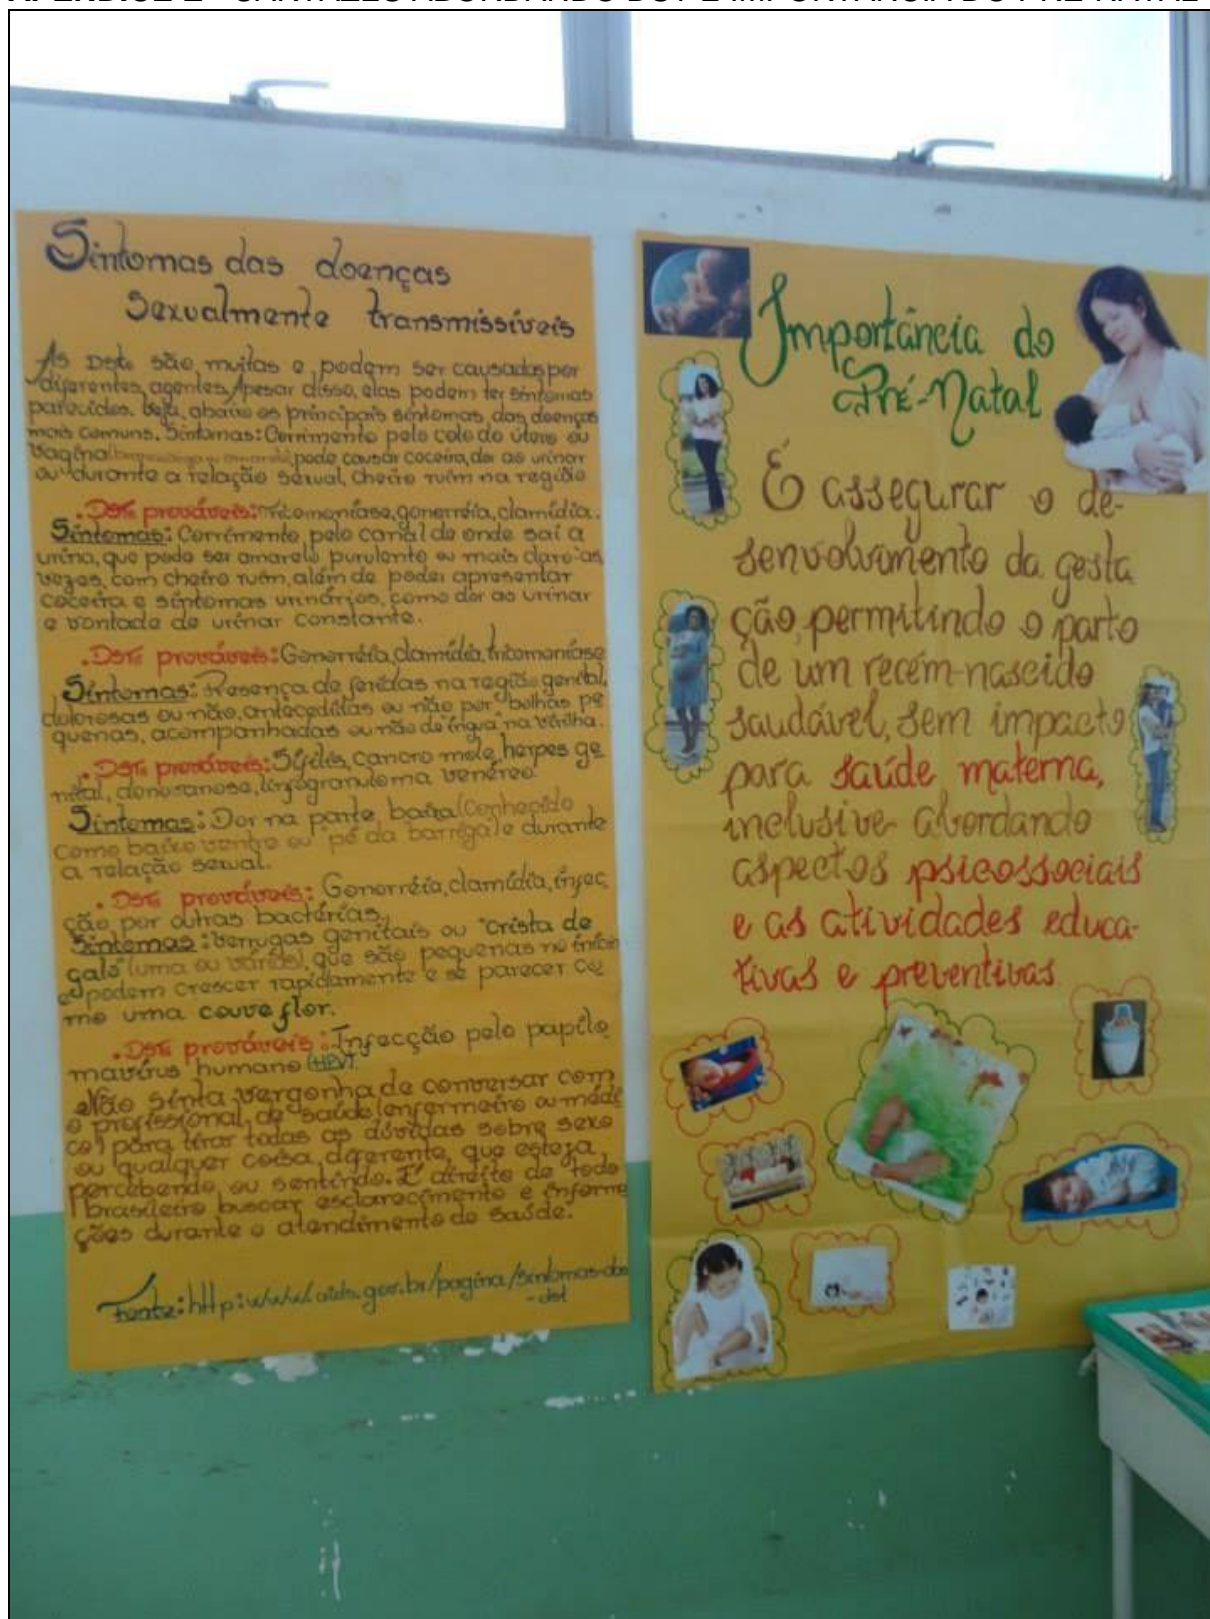 Sintomas das doenças
sexualmente transmissíveis
As DSTs são muitas e podem ser causadas por
diferentes agentes. Apesar disso, elas podem ter sintomas
parecidos. Veja, abaixo os principais sintomas das doenças
mais comuns. Sintomas: Corrimento pelo colo do útero ou
vagina pode causar coceira, dor ao urinar
ou durante a relação sexual, cheiro ruim na região
. DSTs prováveis: Tricomoníase, gonorréia, clamídia.
Sintomas: Corrimento pelo canal de onde sai a
urina, que pode ser amarelo purulento ou mais claro - às
vezes, com cheiro ruim, além de poder apresentar
coceira e sintomas urinários, como dor ao urinar
e vontade de urinar constante.
. DSTs prováveis: Gonorréia, clamídia, tricomoníase
Sintomas: Presença de feridas na região genital,
dolorosas ou não, antecedidas ou não por bolhas pe
quenas, acompanhadas ou não de "íngua" na virilha.
. DSTs prováveis: Sífilis, cancro mole, herpes ge
nital, donovanose, linfogranuloma venéreo.
Sintomas: Dor na parte baixa (conhecido
como baixo ventre ou "pé da barriga") e durante
a relação sexual.
. DSTs prováveis: Gonorréia, clamídia, infec
ção por outras bactérias.
Sintomas: Verrugas genitais ou "crista de
galo" (uma ou várias), que são pequenas no início
e podem crescer rapidamente e se parecer co
mo uma couve flor.
. DSTs prováveis: Infecção pelo papilo
mavírus humano (HPV)
Não sinta vergonha de conversar com
o profissional de saúde (enfermeiro ou médi
co) para tirar todas as dúvidas sobre sexo
ou qualquer coisa diferente que esteja
percebendo ou sentindo. É direito de todo
brasileiro buscar esclarecimento e informa
ções durante o atendimento de saúde.
Fonte: http:www.aids.gov.br/pagina/sintomas-das
-dst
Importância do
Pré-Natal
É assegurar o de-
senvolvimento da gesta
ção, permitindo o parto
de um recém-nascido
saudável, sem impacto
para saúde materna,
inclusive abordando
aspectos psicossociais
e as atividades educa-
tivas e preventivas.